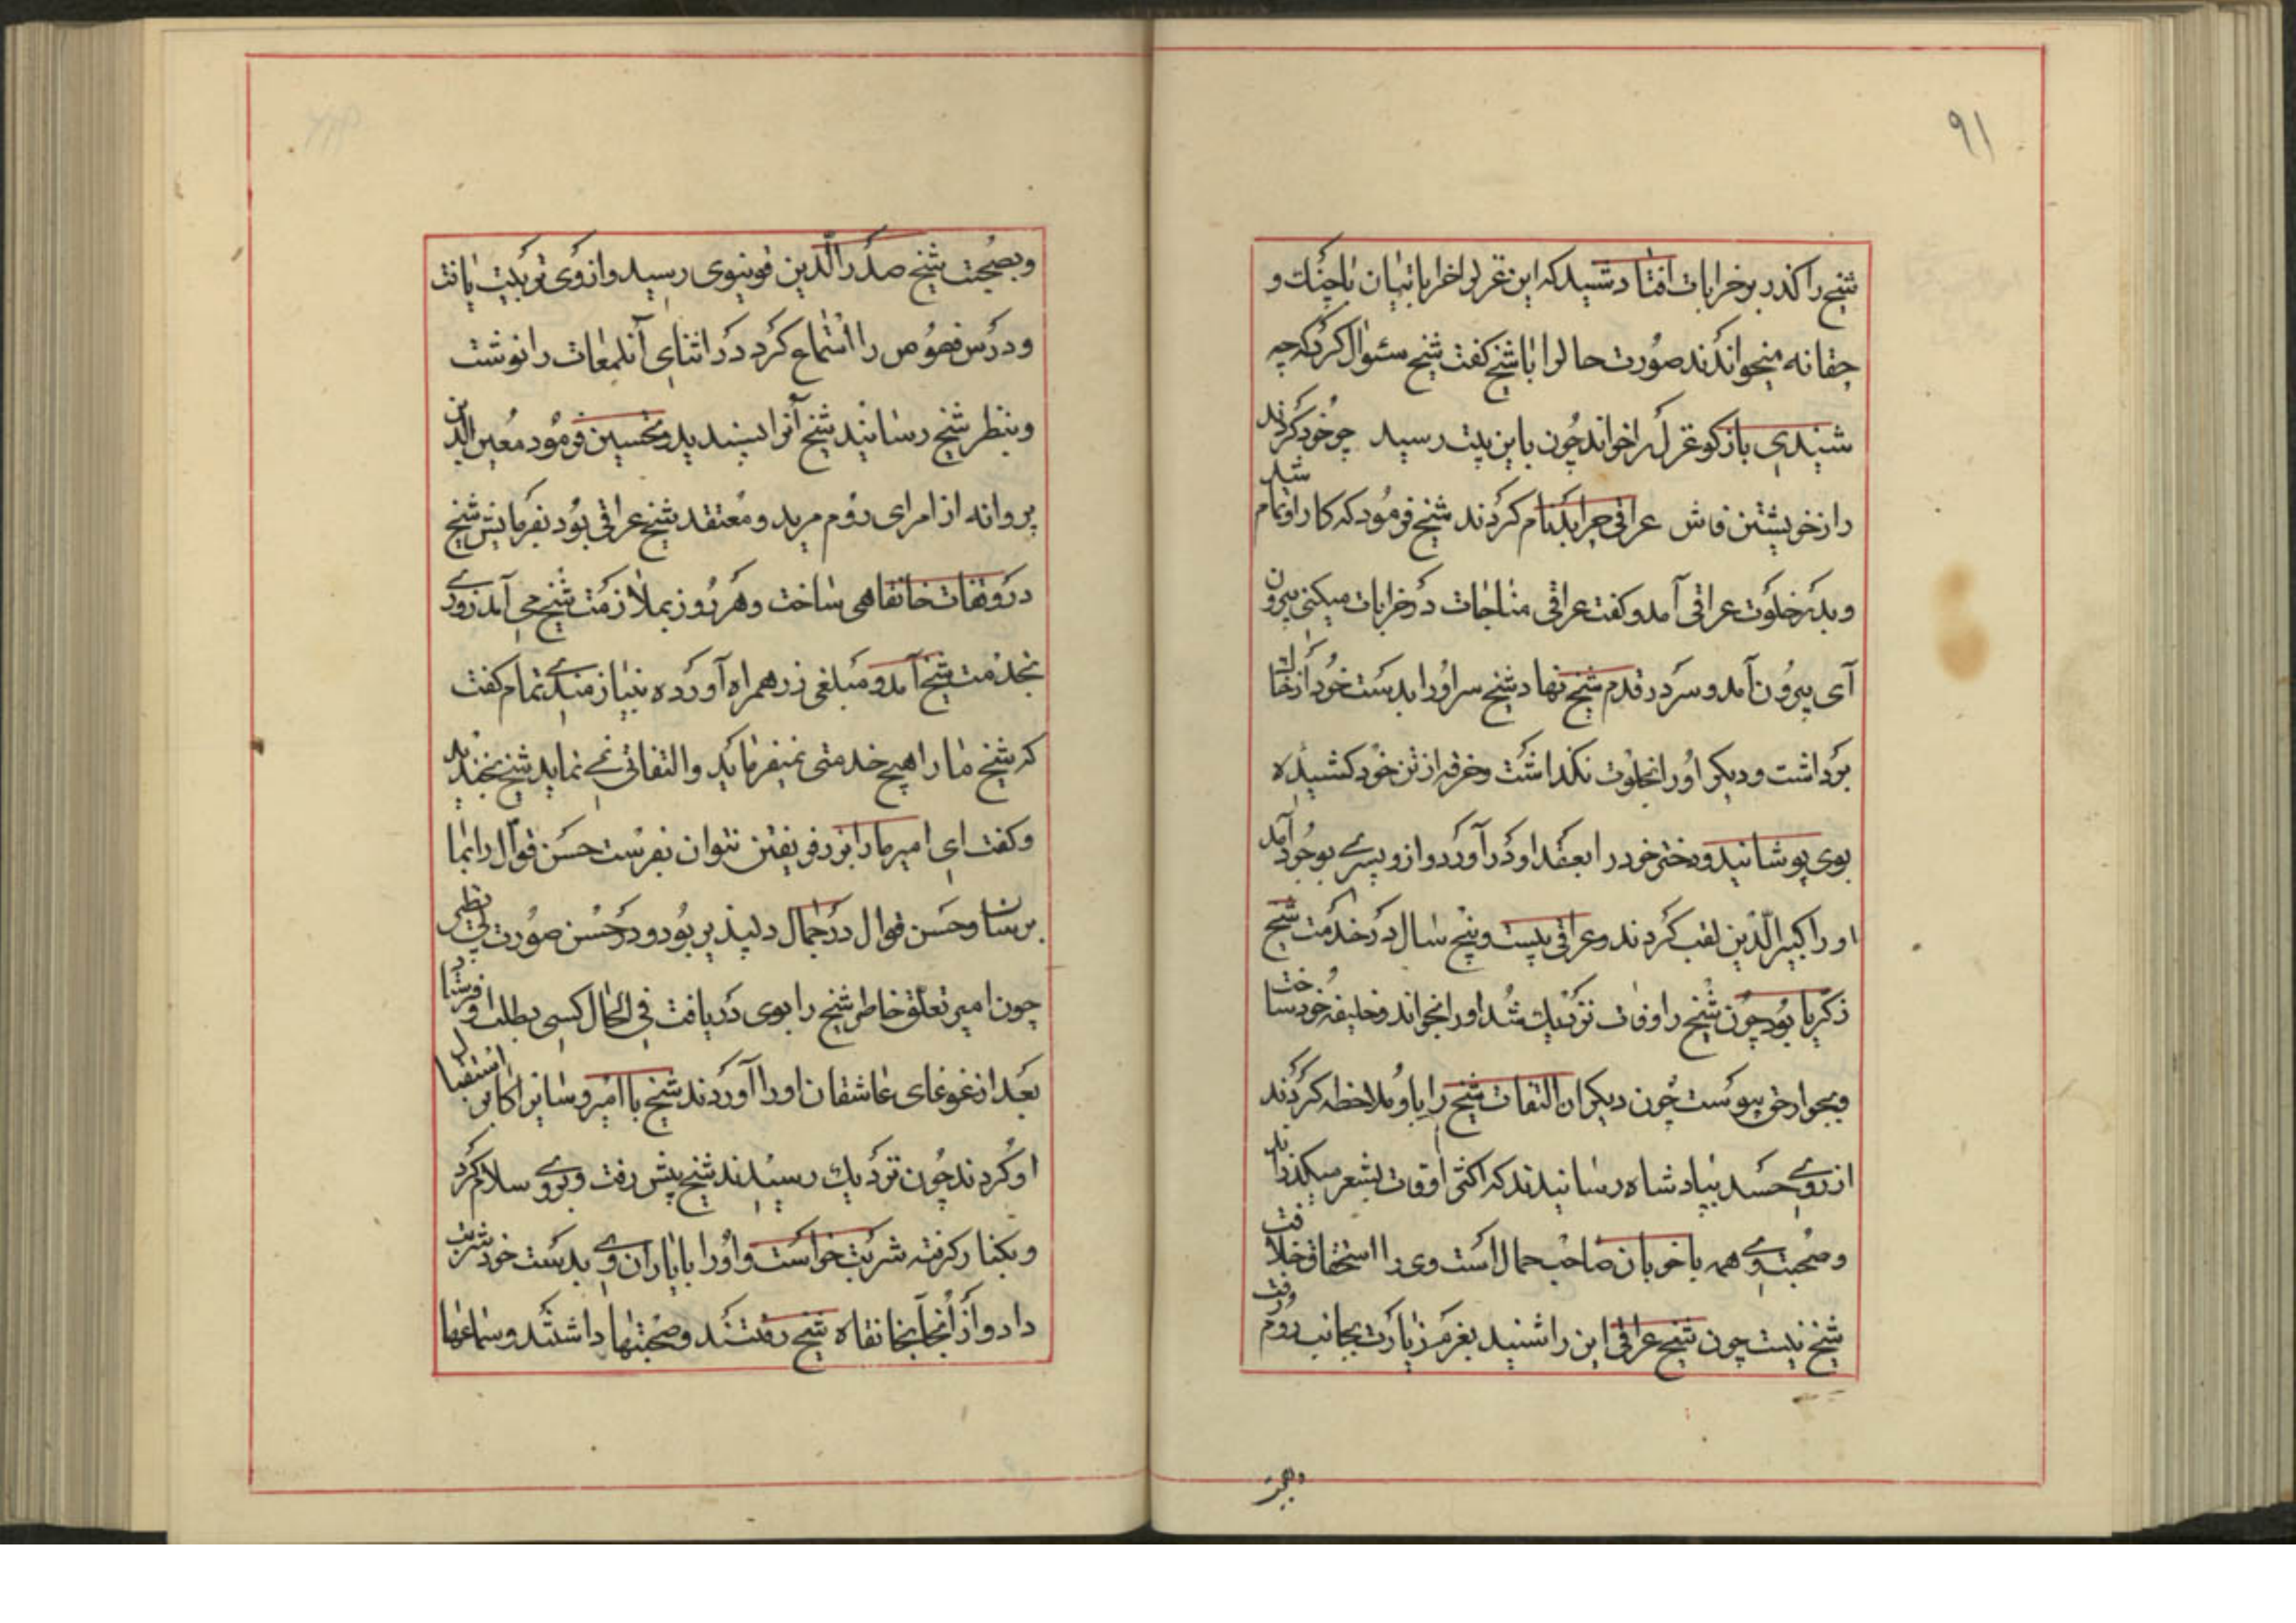 ۹۱
شیخ را کذر بر خرابات افتاد شنید که این غزل را خراباتیان با چنک و
جغانه میخواندند صورت حال را با شیخ کفت شیخ سئوال کرد که چه
شنیدی باز کو غزل را خواند چون باین بیت رسید چو خود کردند
راز خویشتن فاش عراقی چرا بدنام کردند شیخ فرمود که کار او تمام شد
و بدر خلوت عراقی آمد و کفت عراقی مناجات در خرابات میکنی بیرون
آی بیرون آمد و سر در قدم شیخ نهاد شیخ سر او را بدست خود از خاک
برداشت و دیکر او را بخلوت نکذاشت و خرقه از تن خود کشیده
بوی پوشانید و دختر خود را بعقد او در آورد و ازو پسرے بوجود آمد
او را کبیر الدین لقب کردند و عراقی بیست و پنج سال در خدمت شیخ
زکریا بود چون شیخ را وفات نزدیک شد او را بخواند و خلیفه خود ساخت
و بجوار حق پیوست چون دیکران التفات شیخ را باو ملاحظه کردند
از روے حسد بپادشاه رسانیدند که اکثر اوقات بشعر میکذراند
و صحبت وے همه با خوبان صاحب جمال است وی را استحقاق خلافت
شیخ نیست چون شیخ عراقی این را شنید بعزم زیارت بجانب روم رفت
و بصحبت شیخ صدر الدین قونیوی رسید و از وی تربیت یافت
و درس فصوص را استماع کرد در اثنای آن لمعات را نوشت
و بنظر شیخ رسانید شیخ آنرا بپسندید و تحسین فرمود معین الدین
پروانه از امرای روم مرید و معتقد شیخ عراقی بود بفرمایش شیخ
در وقات خانقاهی ساخت و هر روز بملازمت شیخ می آمد روزے
بخدمت شیخ آمد و مبلغی زر همراه آورده بنیازمندے تمام کفت
که شیخ ما را هیچ خدمتی نمیفرماید و التفاتی نمے نماید شیخ بخندید
و کفت ای امیر ما را بزر فریفتن نتوان بفرست حسن قوال را بما
برسان و حسن قوال در جمال دلپذیر بود و در حسن صورت بی نظیر
چون امیر تعلق خاطر شیخ را بوی دریافت فی الحال کسی بطلب او فرستاد
بعد از غوغای عاشقان او را آوردند شیخ با امیر و سایر اکابر استقبال
او کردند چون نزدیک رسیدند شیخ پیش رفت و بروے سلام کرد
و بکنار کرفته شربت خواست و او را با یاران وے بدست خود شربت
داد و از آنجا بخانقاه شیخ رفتند و صحبتها داشتند و سماعها